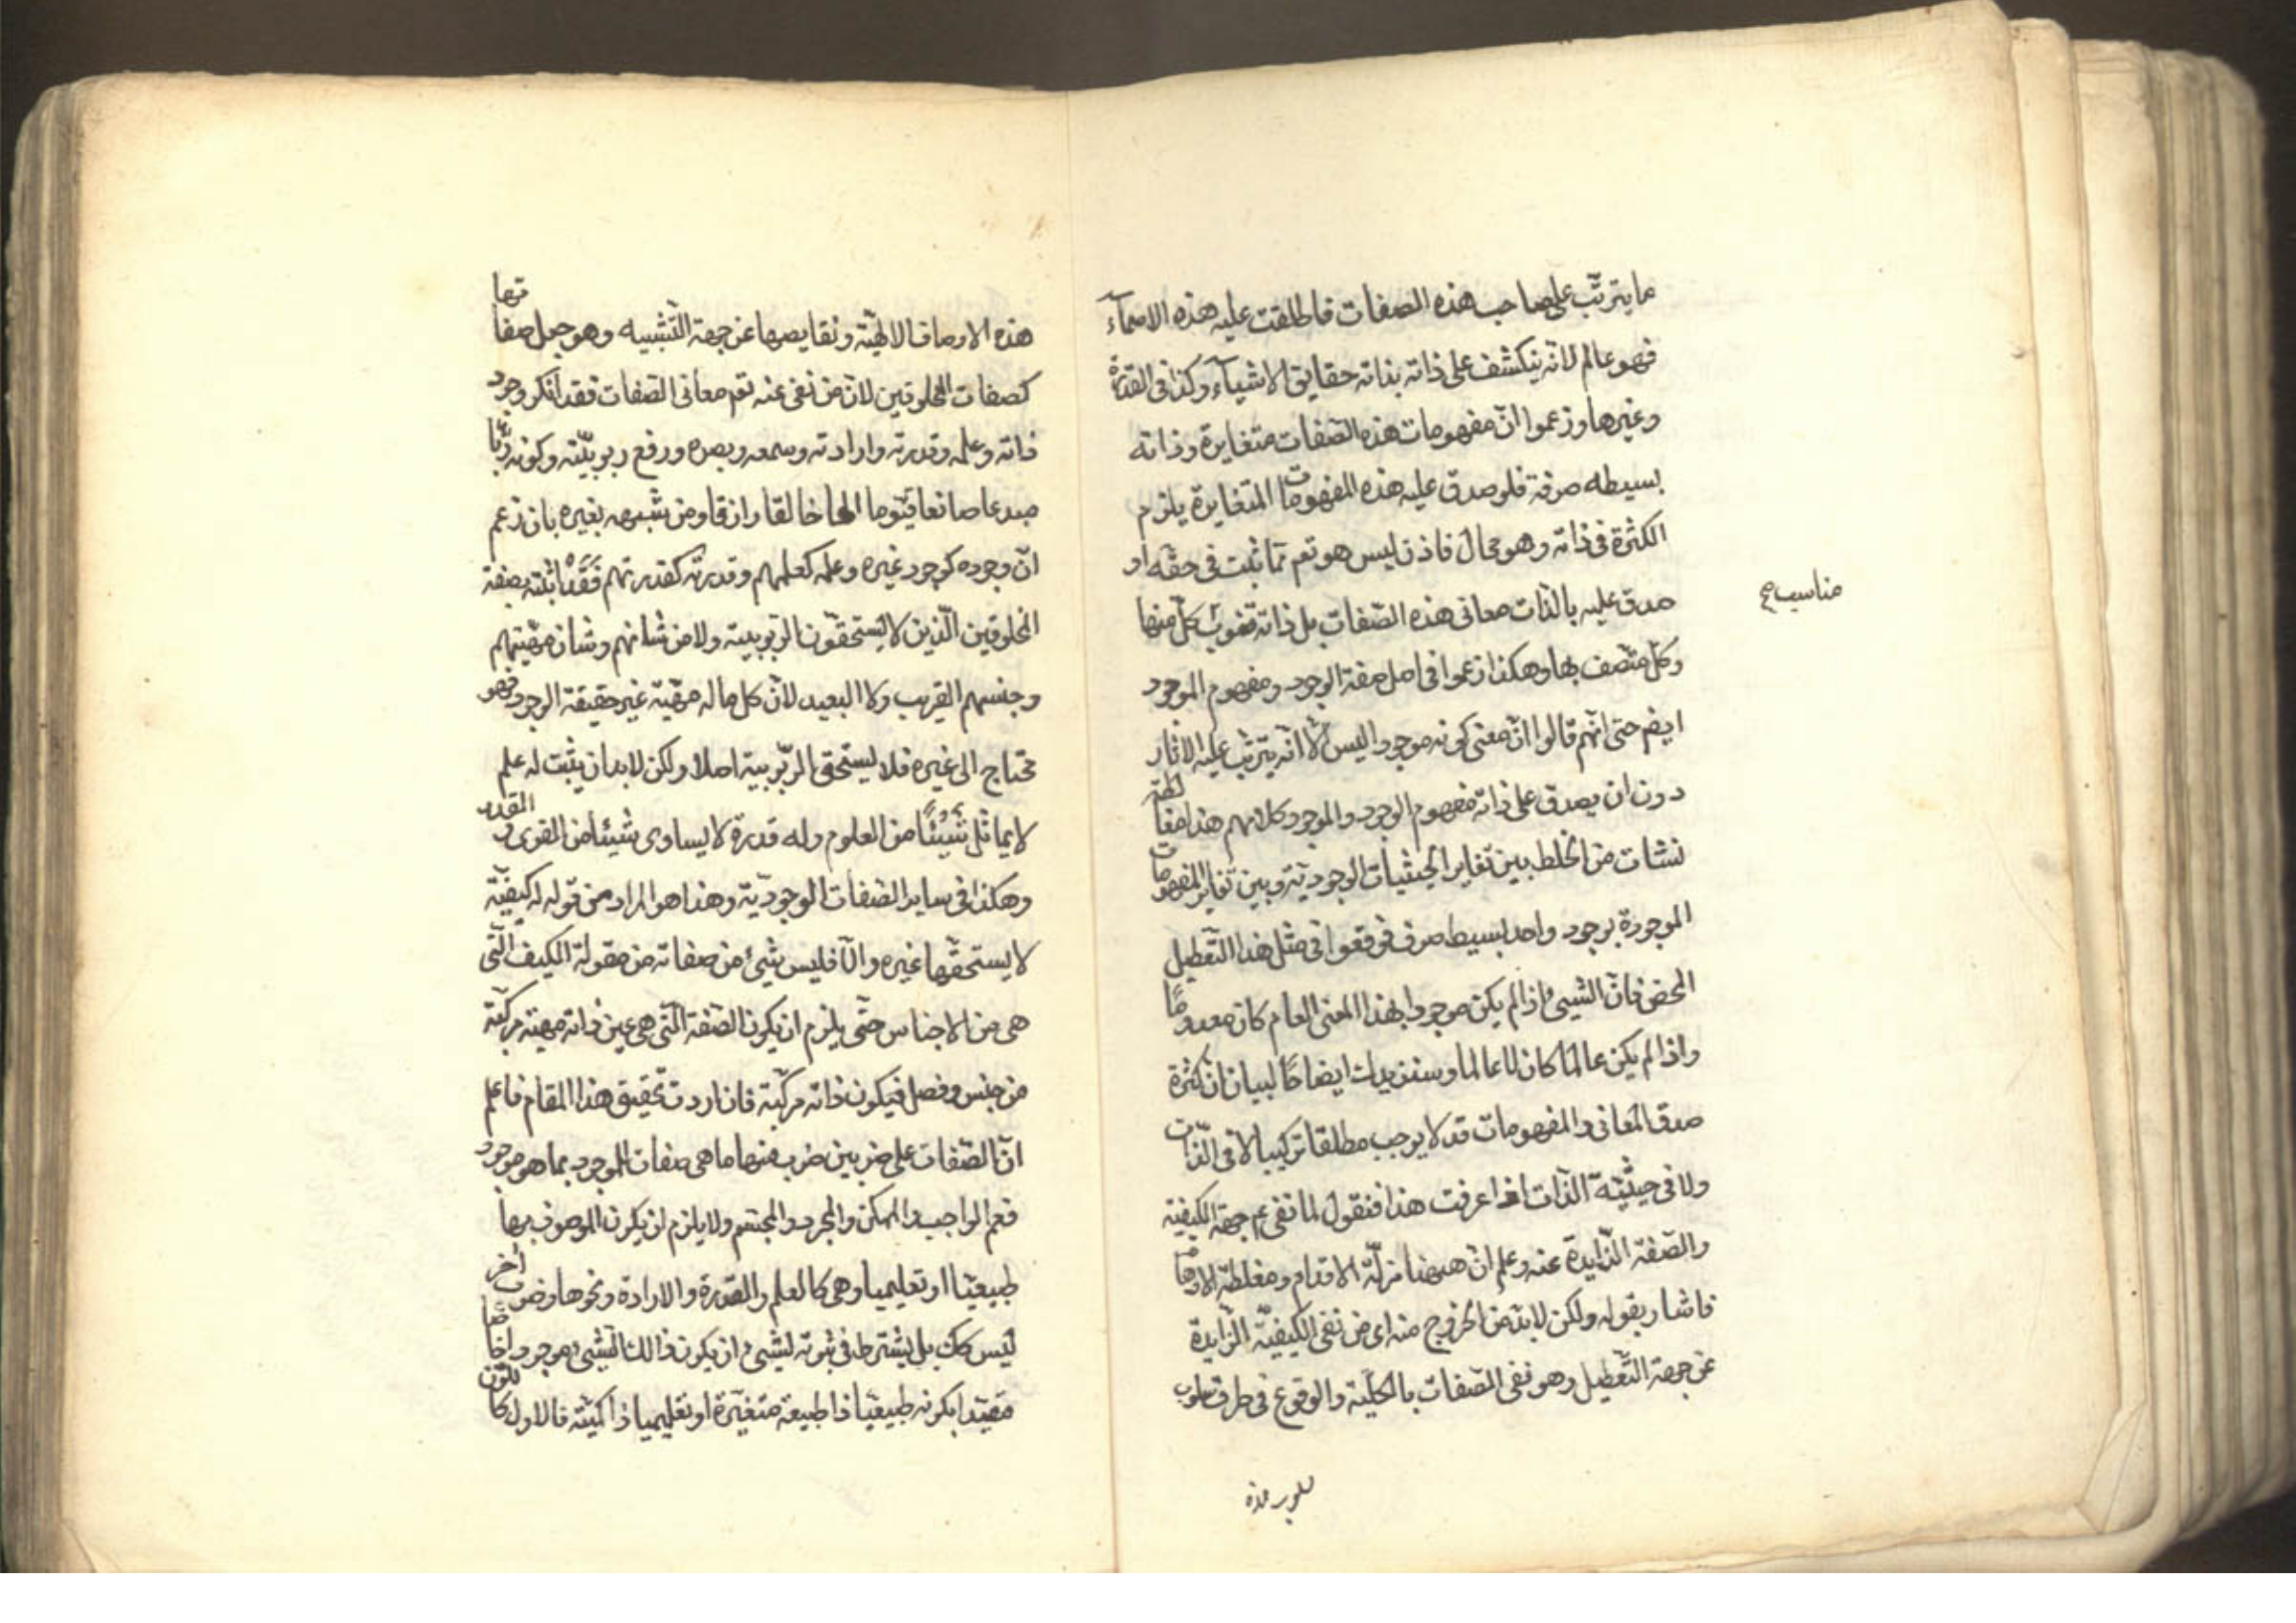 ما يترتب على صاحب هذه الصفات فاطلقت عليه هذه الاسمآء
فهو عالم لانه ينكشف على ذاته بذاته حقايق الاشيآء وكذا فى القدرة
وغيرها وزعموا انّ مفهومات هذه الصفات متغايرة وذاته
بسيطه صرفة فلو صدق عليه هذه المفهومات المتغايرة يلزم
الكثرة فى ذاته وهو محال فاذن ليس هو تعم مما ثبت فى حقه او
صدق عليه بالذات معانى هذه الصّفات بل ذاته تنوب كلّ منها
مناسب صح
وكلّ متّصف بها وهكذا زعموا فى اصل صفة الوجود ومفهوم الموجود
ايضم حتى انّهم قالوا انّ معنى كونه موجودا ليس الّا انّه يترتب عليه الاثار
دون ان يصدق على ذاته مفهوم الوجود والموجود وكلامهم هذا مغالطة
نشات من الخلط بين تغاير الحيثيات الوجوديّة وبين تغاير المفهومات
الموجودة بوجود واحد بسيط صرف فوقعوا فى مثل هذا التّعطيل
المحض فانّ الشيىء اذا لم يكن موجودا بهذا المعنى العام كان معدومًا
واذا لم يكن عالمًا كان لا عالما وسنزيدك ايضاحًا لبيان ان كثرة
صدق المعانى والمفهومات قد لا يوجب مطلقا تركيبا لا فى الذّات
ولا فى حيثيّة الذات اذا عرفت هذا فنقول لما نفى عم جهة الكيفية
والصّفة الزّايدة عنه وعلم انّ ههنا مزلّة الاقدام ومغلطة الاوهام
فاشار بقوله ولكن لا بدّ من الخروج منه اى من نفى الكيفيّة الزّايدة
عن جهة التّعطيل وهو نفى الصّفات بالكليّة والوقوع فى طرف سلوب
سلوب هذه
هذه الاوصاف الالهيّة ونقايصها عن جهة التشبيه وهو جعل صفاتها
كصفات المخلوقين لانّ من نفى عنه تعم معانى الصّفات فقد انكر وجود
ذاته وعلمه وقدرته وارادته وسمعه وبصره ورفع ربوبيّته وكونه ربّا
مبدعا صانعا قيّوما الها خالقا رازقا ومن شبهه بغيره بان زعم
انّ وجوده كوجود غيره وعلمه كعلمهم وقدرته كقدرتهم فقد اثبته بصفة
المخلوقين الّذين لا يستحقّون الرّبوبية ولا من شانهم وشان مهيّتهم
وجنسهم القريب ولا البعيد لانّ كل ما له مهيّة غير حقيقة الوجود فهو
محتاج الى غيره فلا يستحق الرّبوبية اصلا ولكن لا بد ان يثبت له علم
لا يماثل شيئًا من العلوم وله قدرة لا يساوى شيئا من القوى والقدر
وهكذا فى ساير الصّفات الوجوديّة وهذا هو المراد من قوله له كيفيّة
لا يستحقّها غيره والّا فليس شيئ من صفاته من مقولة الكيف الّتى
هى من الاجناس حتّى يلزم ان يكون الصّفة الّتى هى عين ذاته مهيّة مركّبة
من جنس وفصل فيكون ذاته مركّبة فان اردت تحقيق هذا المقام فاعلم
انّ الصّفات على ضربين ضرب منها ما هى صفات الموجود بما هو موجود
فعم الواجب والممكن والمجرد والمجسّم ولا يلزم ان يكون الموصوف بها
طبيعيّا او تعليميا وهى كالعلم والقدرة والارادة ونحوها وضرب آخر
ليس كك بل يشترط فى ثبوته لشيىء ان يكون ذالك الشيىء موجودا خاصّا
مقيّدا بكونه طبيعيّا ذا طبيعة متغيّرة او تعليميا ذا كميّة فالاول كاللون